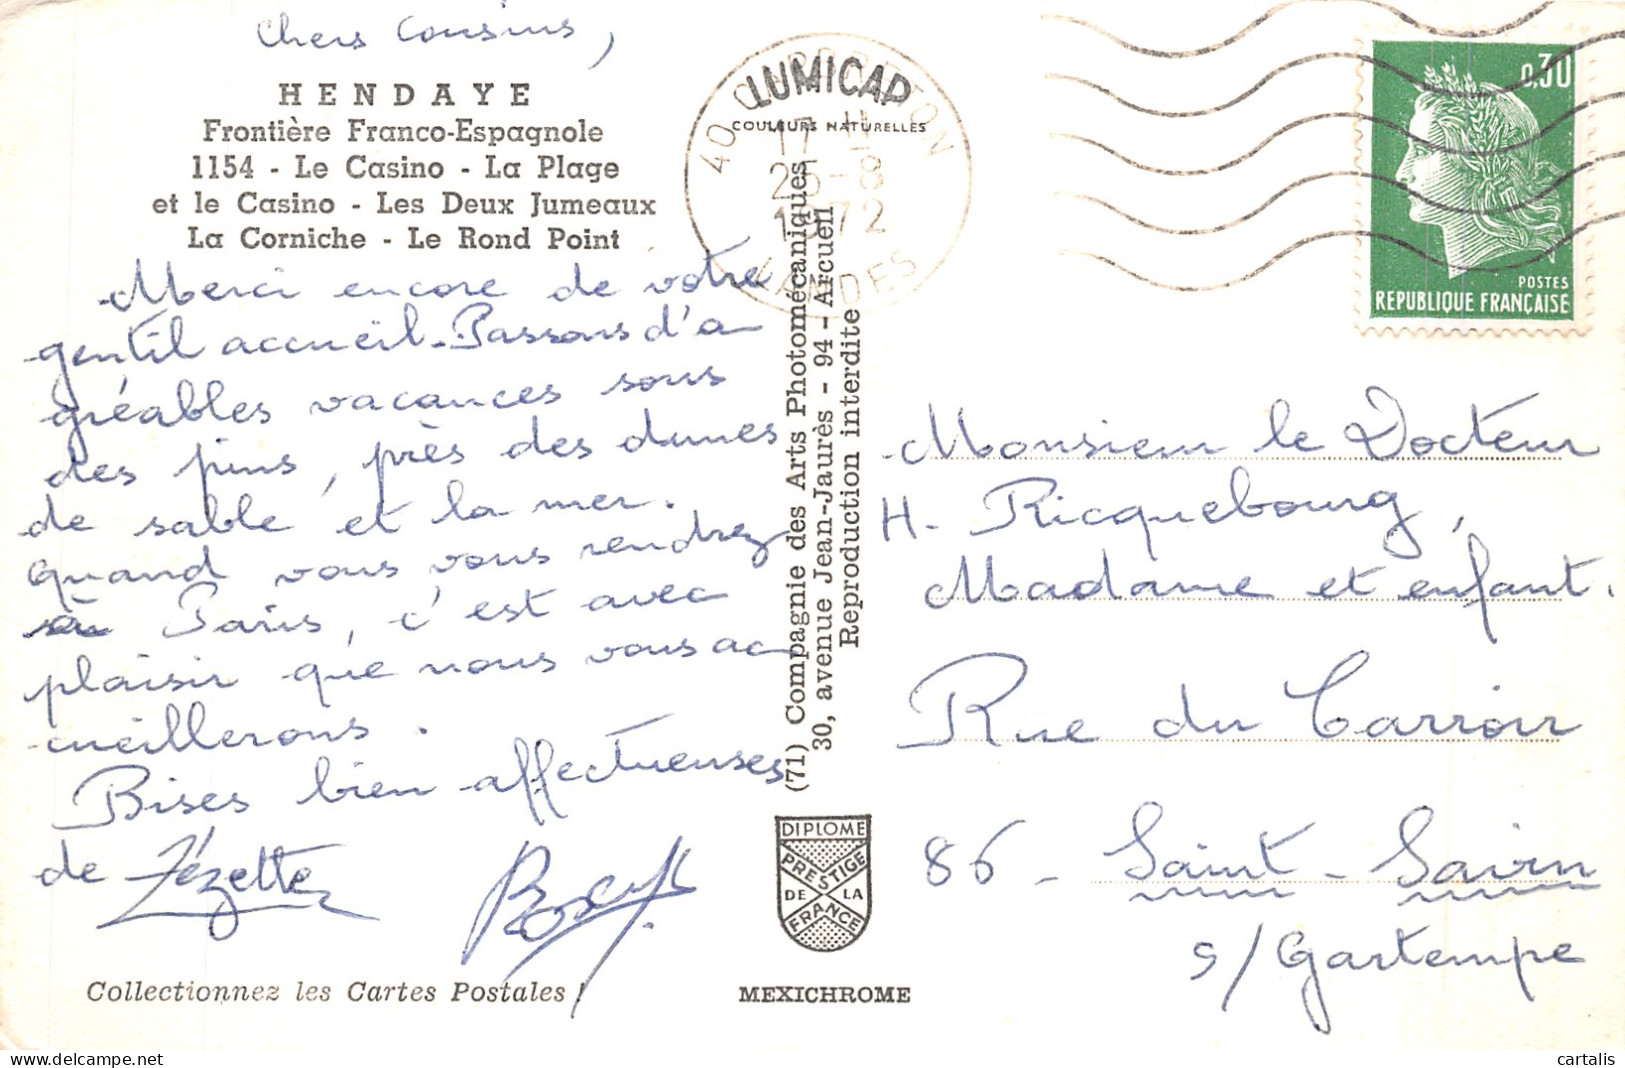 Chers Cousins,
HENDAYE
Frontière Franco-Espagnole
1154 - Le Casino - La Plage
et le Casino - Les Deux Jumeaux
La Corniche - Le Rond Point
Merci encore de votre
gentil accueil. Passons d'a
gréables vacances sous
des pins, près des dunes
de sable et la mer.
Quand vous vous rendrez
à Paris, c'est avec
plaisir que nous vous ac
cueillerons.
Bises bien affectueuses
de Zézette
Collectionnez les Cartes Postales !
LUMICAP
COULEURS NATURELLES
40
17 H
25-8
1972
LANDES
(71) Compagnie des Arts Photomécaniques
30, avenue Jean-Jaurès - 94 - Arcueil
Reproduction interdite
DIPLOME
PRESTIGE
DE LA
FRANCE
MEXICHROME
0,30
POSTES
REPUBLIQUE FRANÇAISE
Monsieur le Docteur
H. Ricquebourg,
Madame et enfant.
Rue du Carroir
86 - Saint-Savin
s/Gartempe
cartalis